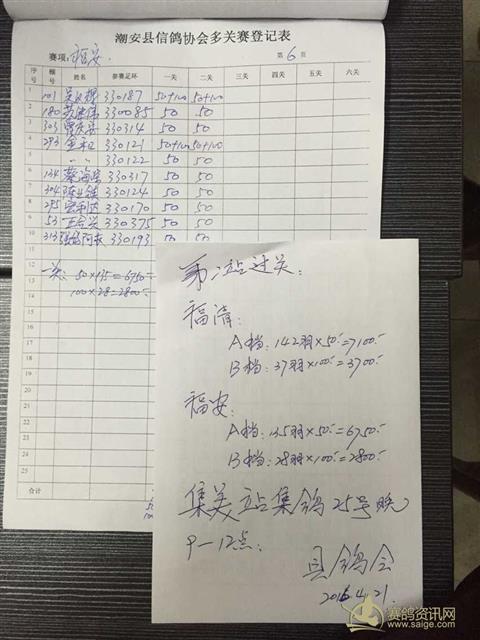 潮安县信鸽协会多关赛登记表
赛项：福安
第 6 页
序号 棚号 姓名 参赛足环 一关 二关 三关 四关 五关 六关
1 101 330187 50+100 50+100
2 180 330085 50 50
3 303 330314 50 50
4 293 330121 50+100 50+100
5 〃 〃 330122 50 50
6 134 蔡海 330317 50 50
7 304 330124 50 50
8 295 330170 50 50
9 53 330375 50 50
10 313 330193 50 50
11
12
一关：50×135=6750-
13
100×28=2800-
14
15
16
17
18
19
20
21
22
23
24
25
合计
第二站过关：
福清：
A档：142羽×50-=7100-
B档：37羽×100-=3700-
福安：
A档：135羽×50-=6750-
B档：28羽×100-=2800-
集美站集鸽25号晚
9—12点：
县鸽会
2016.4.21.
赛鸽资讯网
www.saige.com